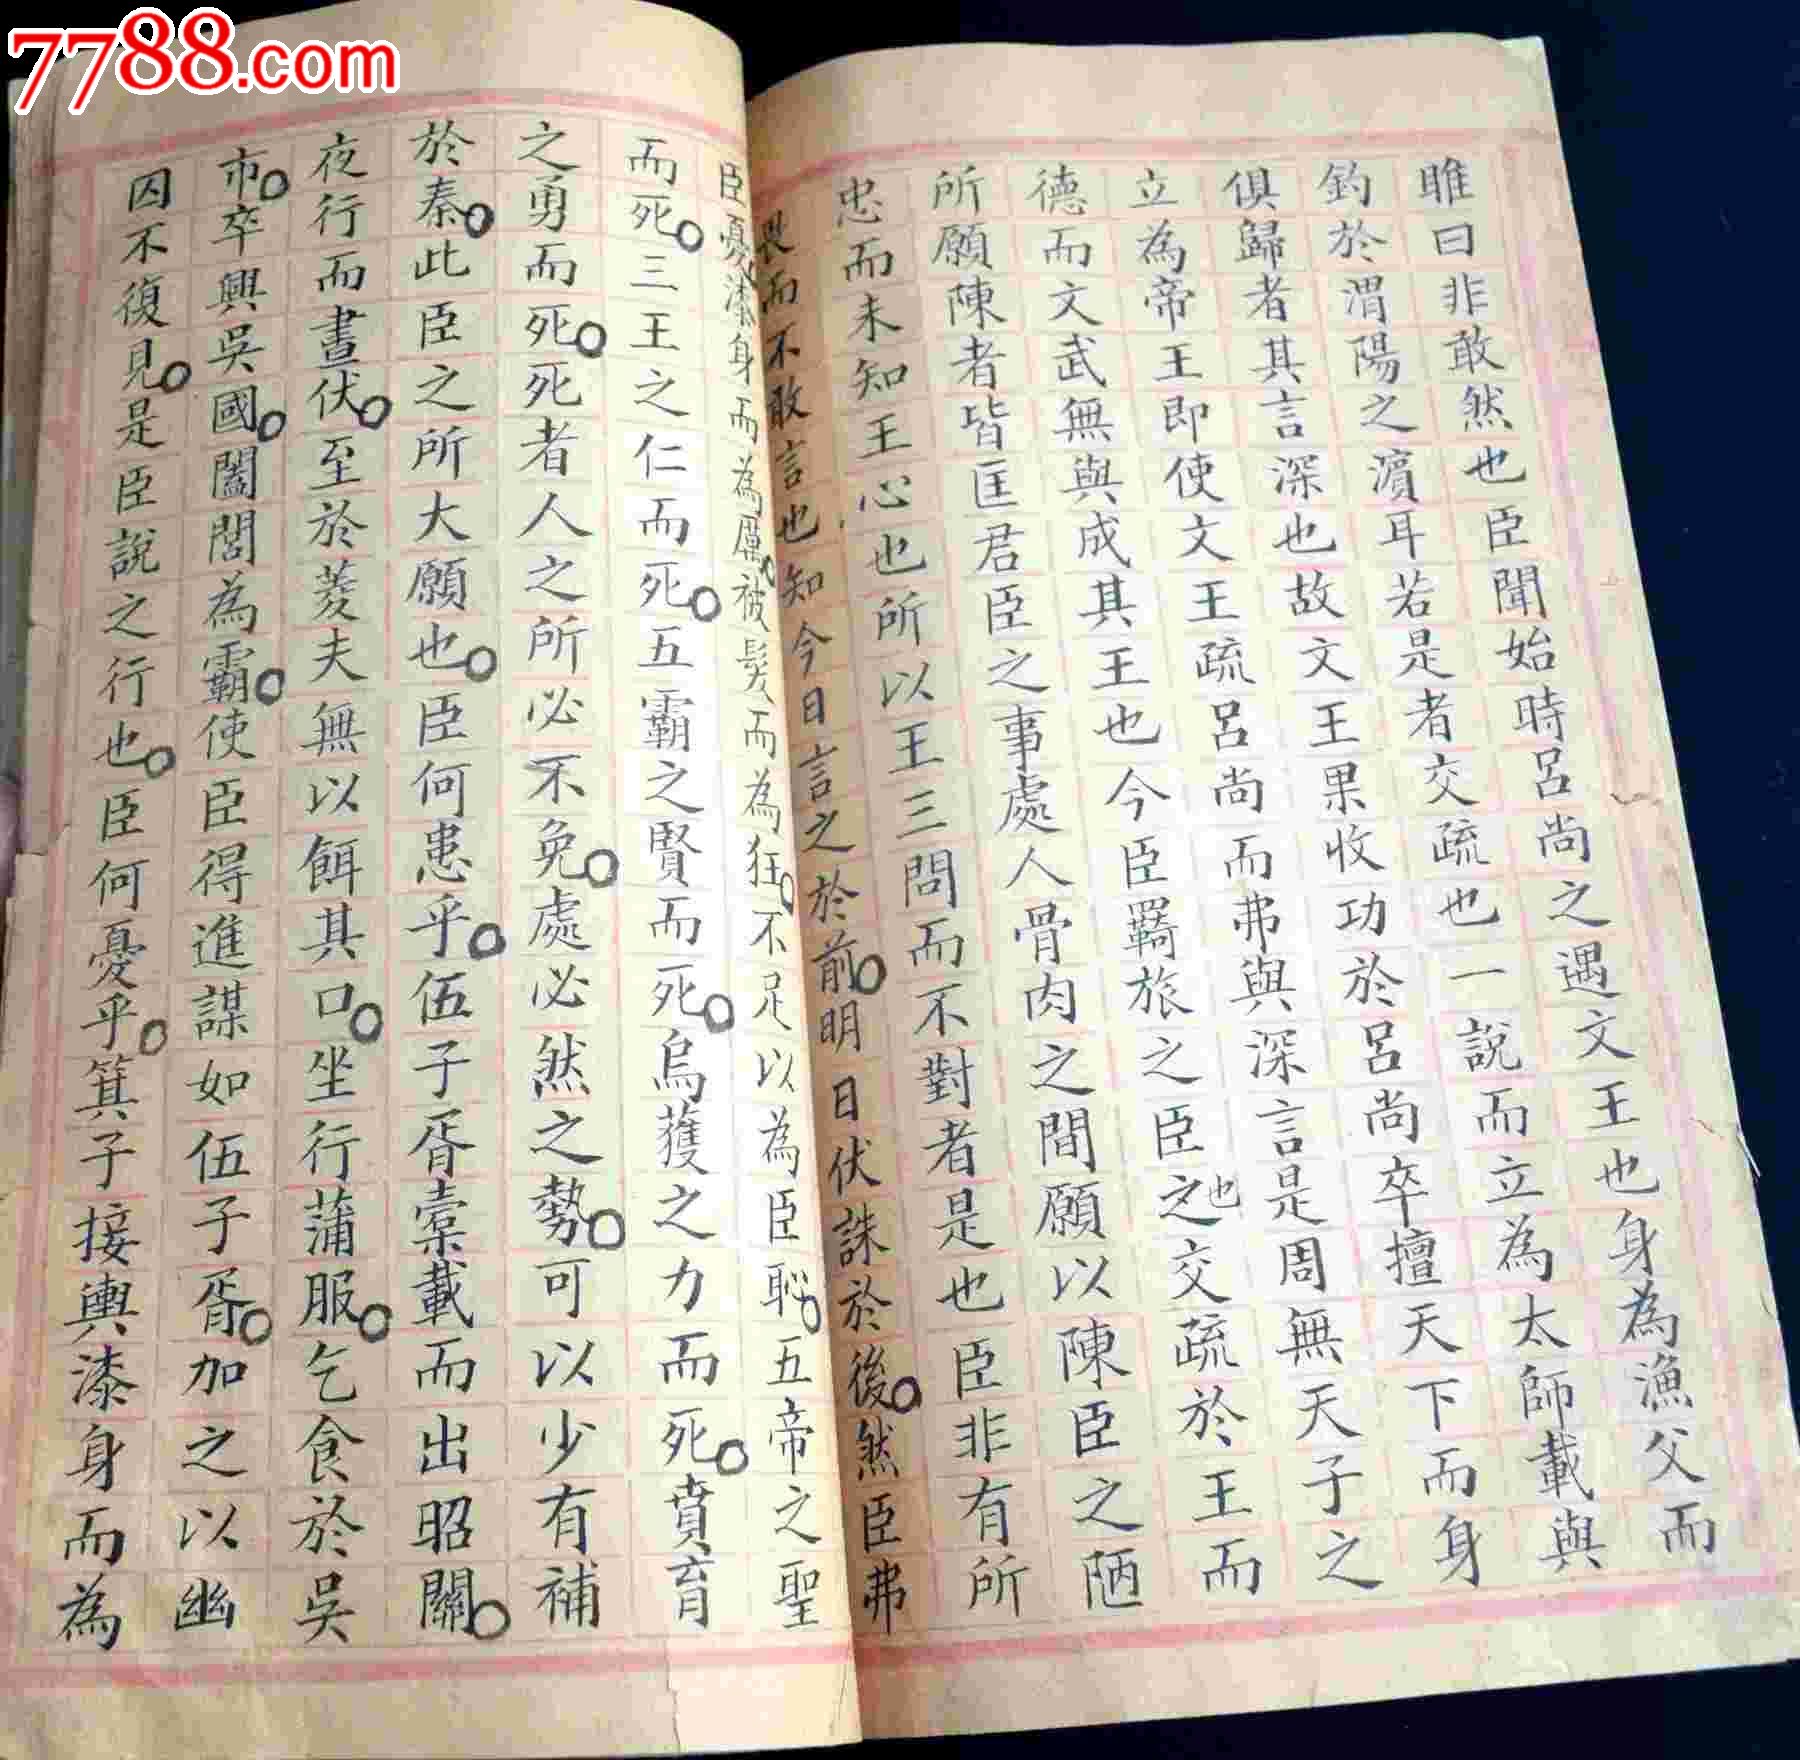 7788.com
睢曰非敢然也臣聞始時呂尚之遇文王也身為漁父而
釣於渭陽之濵耳若是者交疏也一說而立為太師載與
俱歸者其言深也故文王果收功於呂尚卒擅天下而身
立為帝王即使文王疏呂尚而弗與深言是周無天子之
德而文武無與成其王也今臣羇旅之臣之也交疏於王而
所願陳者皆匡君臣之事處人骨肉之間願以陳臣之陋
忠而未知王心也所以王三問而不對者是也臣非有所
畏而不敢言也知今日言之於前。明日伏誅於後。然臣弗
臣憂漆身而為厲。被髮而為狂。不足以為臣恥。五帝之聖
而死。三王之仁而死。五霸之賢而死。烏獲之力而死。賁育
之勇而死。死者人之所必不免。處必然之勢。可以少有補
於秦。此臣之所大願也。臣何患乎。伍子胥橐載而出昭關。
夜行而晝伏。至於菱夫無以餌其口。坐行蒲服。乞食於吳
市。卒興吳國。闔閭為霸。使臣得進謀如伍子胥。加之以幽
囚不復見。是臣說之行也。臣何憂乎。箕子接輿漆身而為